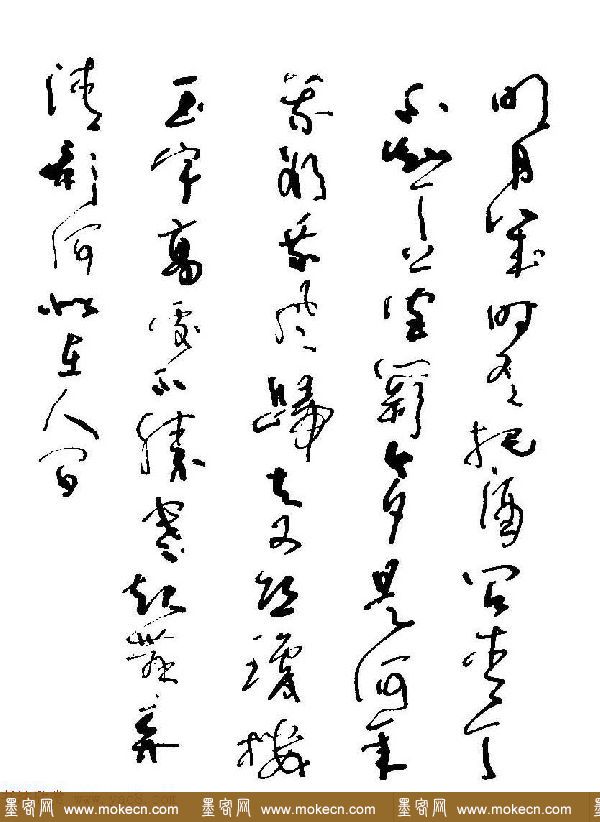 明月幾時有把酒問青天
不知天上宮闕今夕是何年
我欲乘風歸去又恐瓊樓
玉宇高處不勝寒起舞弄
清影何似在人間
墨客网 www.mokecn.com 墨客网 www.mokecn.com 墨客网 www.mokecn.com